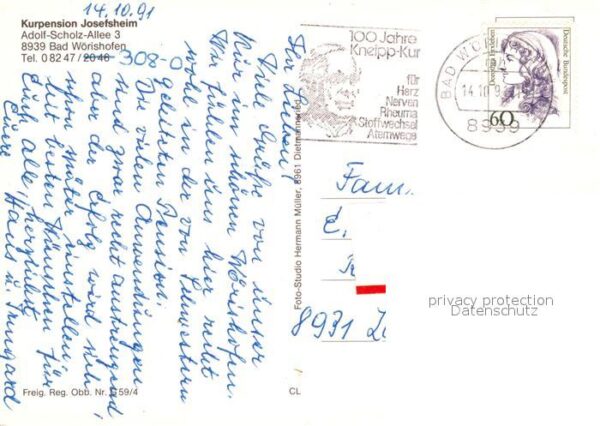 14.10.91
Kurpension Josefsheim
Adolf-Scholz-Allee 3
8939 Bad Wörishofen
Tel. 0 82 47 / 20 46 308-0
Ihr Lieben!
Viele Grüße von unser
Kur im schönen Wörishofen.
Wir fühlen uns hier recht
wohl in der von Schwestern
geleiteten Pension.
Die vielen Anwendungen
sind zwar recht anstrengend,
aber der Erfolg wird sich
später einstellen.
Mit besten Wünschen für
Euch alle, herzlichst
Eure Hans u. Irmgard
Freig. Reg. Obb. Nr. 59/4
CL
Foto-Studio Hermann Müller, 8961 Dietmannsried
100 Jahre
Kneipp-Kur
für
Herz
Nerven
Rheuma
Stoffwechsel
Atemwege
BAD WÖ
14.10.9
8939
Deutsche Bundespost
60
Fam
E.
8931
privacy protection
Datenschutz